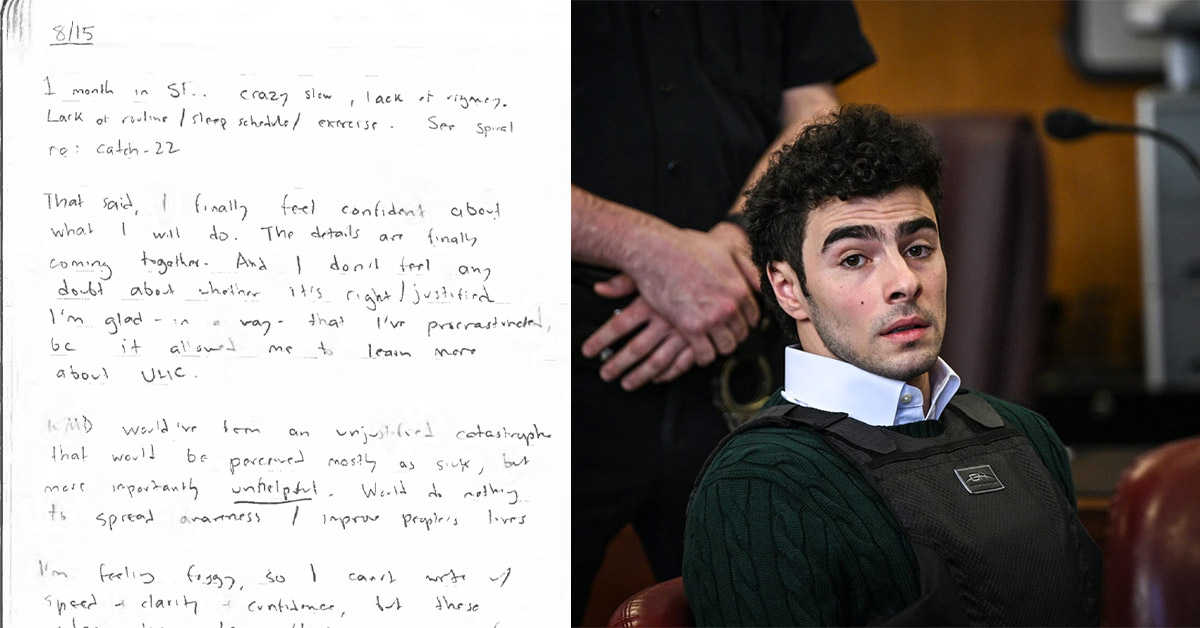 8/15
1 month in SF.. crazy slow, lack of
Lack of routine / sleep schedule / exercise. See spiral
re: catch-22
That said, I finally feel confident about
what I will do. The details are finally
coming together. And I don't feel any
doubt about whether it's right/justified
I'm glad - in a way - that I've procrastinated,
bc it allowed me to learn more
about UHC.
KMD would've been an unjustified catastrophe
that would be perceived mostly as sick, but
more importantly unhelpful. Would do nothing
to spread awareness / improve people's lives
I'm feeling foggy, so I can't write w/
speed + clarity + confidence, but these